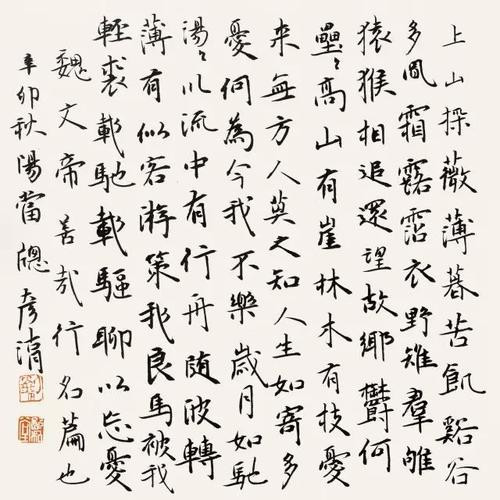 上山採薇薄暮苦飢谿谷
多風霜露霑衣野雉羣雊
猿猴相追還望故鄉鬱何
壘〻高山有崖林木有枝憂
来無方人莫之知人生如寄多
憂何為今我不樂歲月如馳
湯〻川流中有行舟随波轉
薄有似客游策我良馬被我
輕裘載馳載驅聊以忘憂
魏文帝善哉行名篇也
辛卯秋陽當牕彦涓